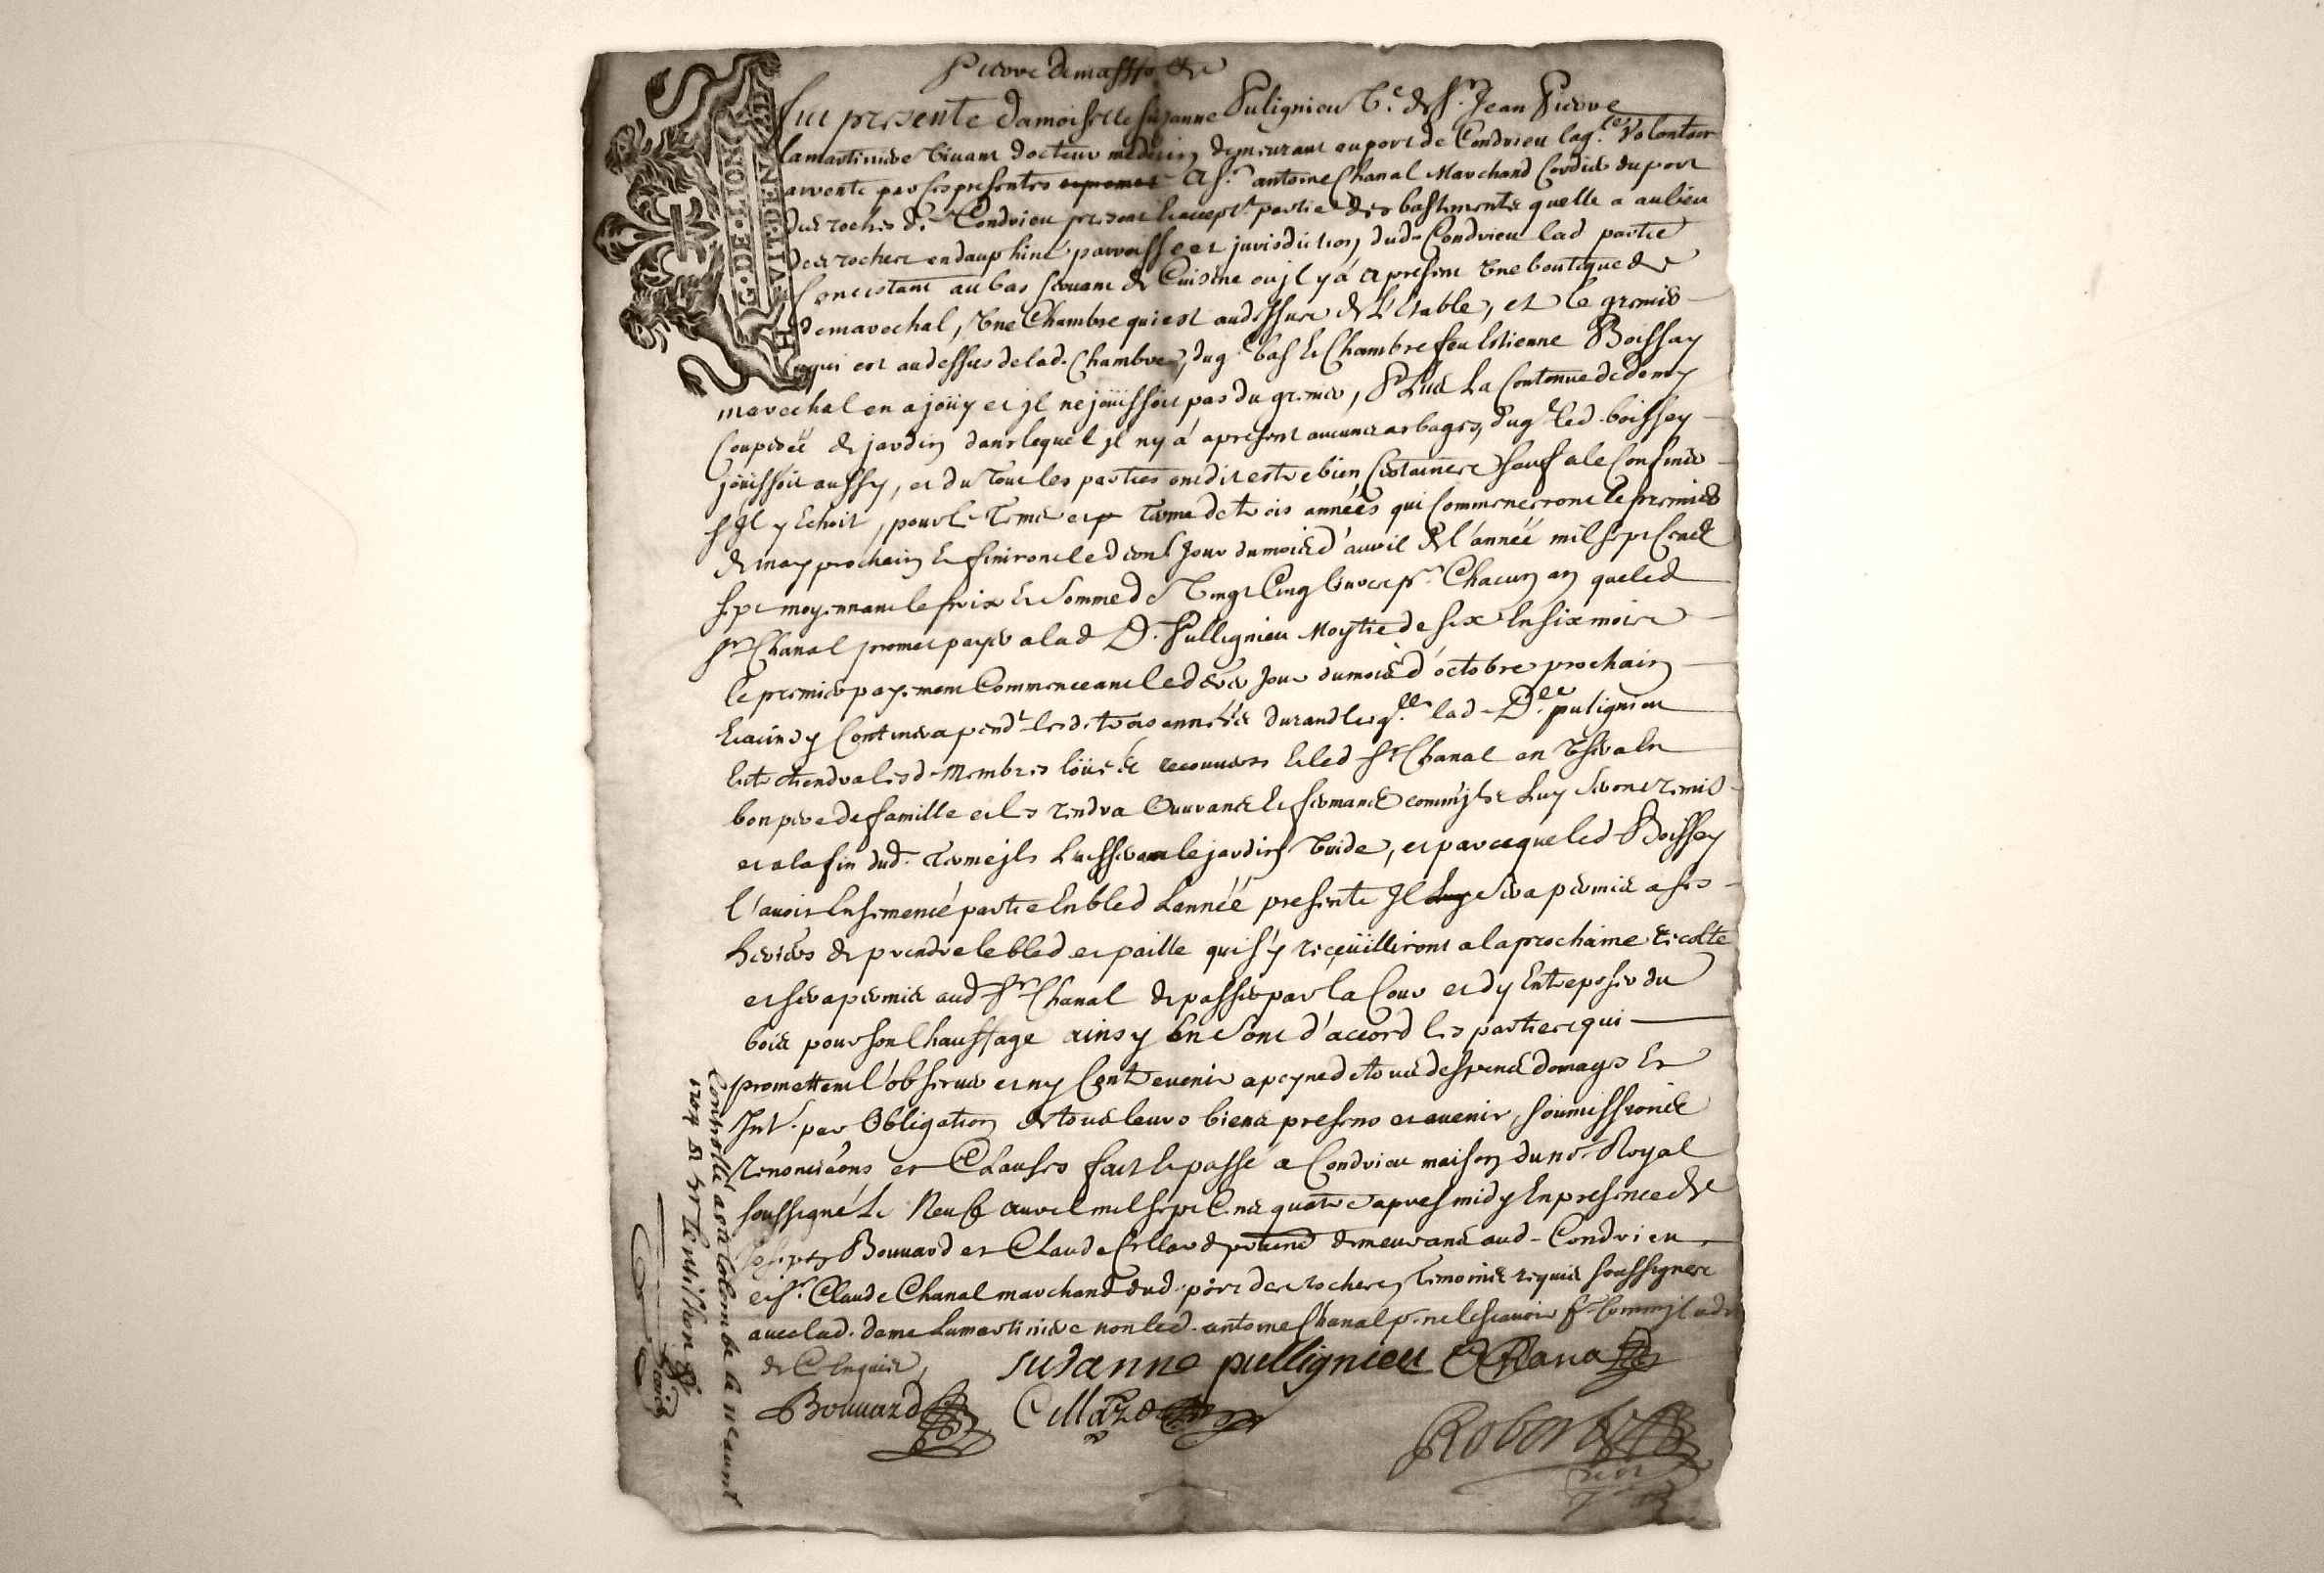 G. DE. LION
Fut presente damoiselle Suzanne Pulignieu v.e de Sr. Jean Pierre
Lamartiniere vivant docteur medecin demeurant au port de Condrieu laq.lle volontair
par ses presentes a Sr. antoine Chanal Marchand Cordier du port
des roches de Condrieu present partie des bastiments quelle a au lieu
des roches en dauphiné parroisse et jurisdiction dud. Condrieu lad partie
Concistant au bas servant de Cuisine ou jl y á a present vne boutique de
de marechal, vne Chambre qui est au dessus de L'Etable, et le grenier
qui est au dessus de lad. Chambre, dug. bas & Chambre feu Estienne Boissay
marechal en a joüy et jl ne joüissoit pas du grenier, Plus La Contenue de demy
Couperée de jardin dans lequel jl ny á apresent aucuns arbages, dug.l led. boissey
joüissoit aussy, et du tout les parties ont dit estre bien Certaines sauf a le Confiner
s'jl y Echoit, pour le temps et terme de trois années qui Commenceront le premier
de may prochain & finiront le d jour du mois d'auril de l'année mil sept Cent
sept moyennant le prix & somme de Vingt Cinq livres pr. Chacun an que led
Sr. Chanal promet payer a lad D. Pullignieu Moytie de six En six mois
le premier payement Commenceant le jour du mois d'octobre prochain
& ainsy Continuera pend.t les d. trois années durand lesq.lles lad. D.lle pulignieu
Entretiendra les d. Membres loüés recouverts & led Sr. Chanal en vsera En
bon pere de famille et les rendra Ouvrants & fermants comm'jls Luy seront remis
et a la fin dud. terme jls Laissera le jardin vuide, et parce que led Boissey
l'auoit Ensemencé partie En bled Lannéé presente Jl sera permis a ses
heritiers de prendre le bled et paille qui s'y receüilliront a la prochaine recolte
et sera permis aud Sr. Chanal de passer par la Cour et dy Entreposer du
bois pour son Chauffage ainsy En sont d'accord les parties qui
promettent l'observer et ny Contrevenir a peyne de tous despens domages &
Int. par Obligation de tous leurs biens presens et avenir, soumissions
renonciaons et Clauses fait & passé a Condrieu maison du nore. Royal
soussigné Le Neufe avril mil sept Cens quatre apres midy En presence de
Joseph Bouuard et Claude Cellard demeurans aud. Condrieu
et Sr. Claude Chanal marchand dud. port des roches, temoins requis soussignés
avec lad. dame Lamartiniere non led. antoine Chanal pr. ne le scavoir
de Ce Enquis,
susanne pullignieu Chanal
Bouuard Cellard
Robert
Controllé a ste Colombe le neauril
1704